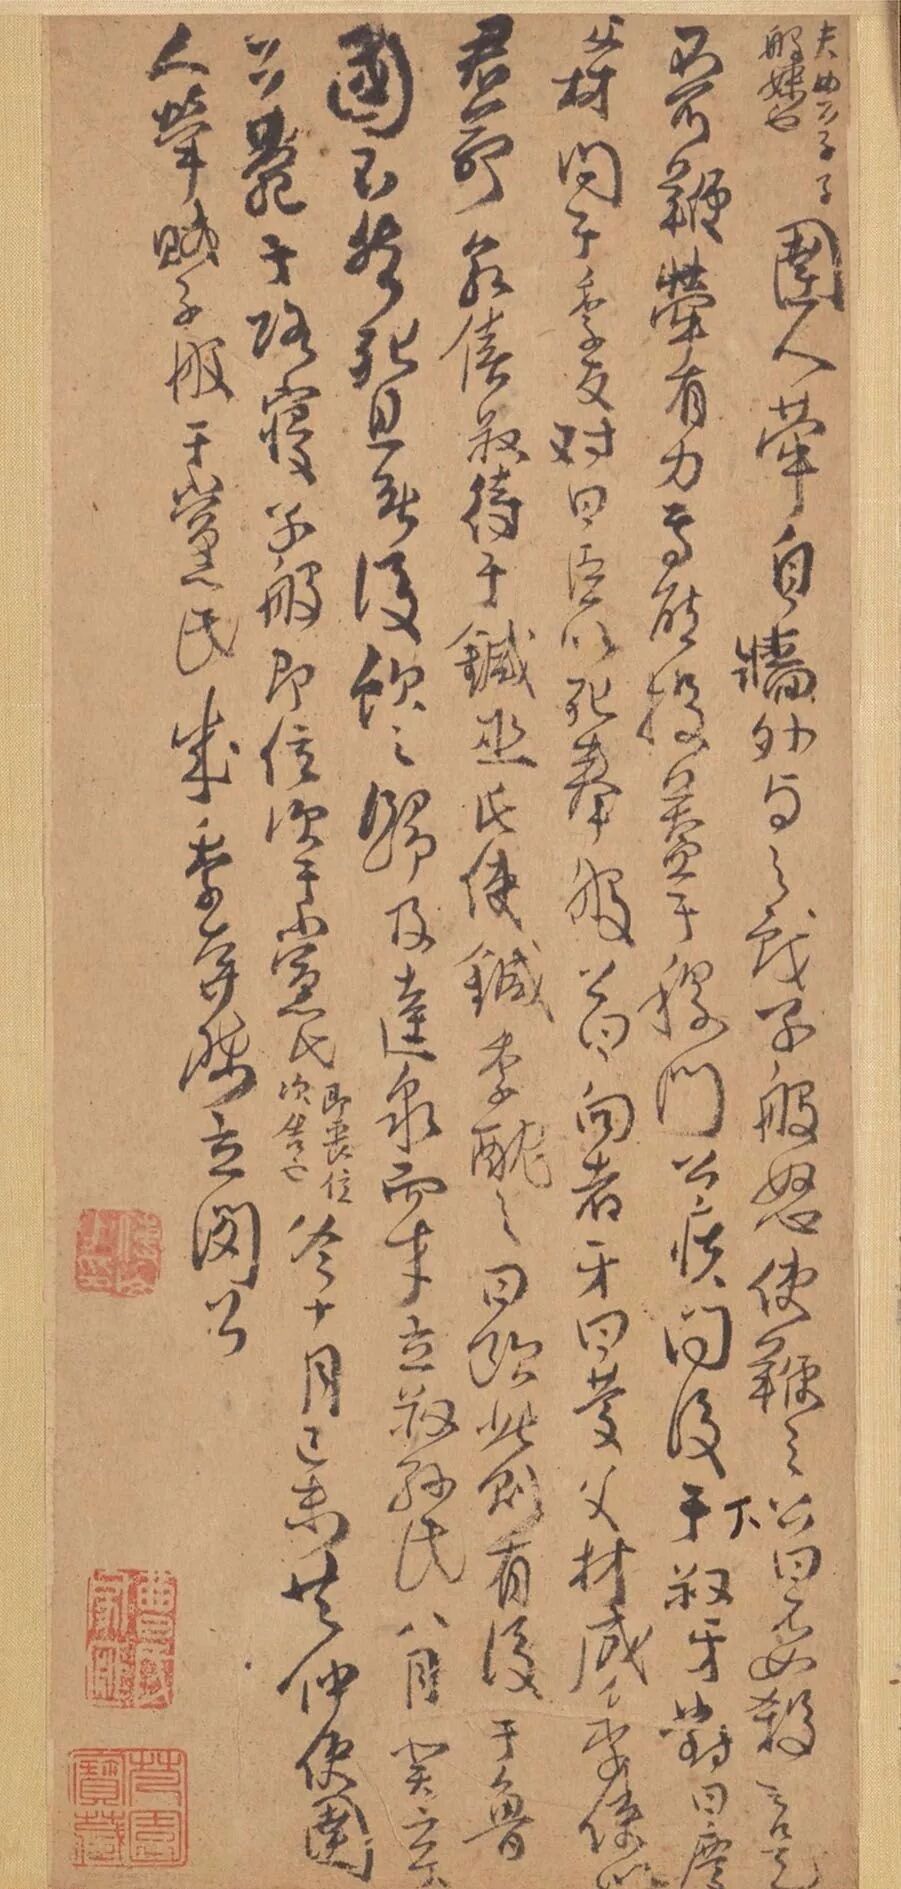 女公子子
般妹也
圉人犖自牆外與之戲子般怒使鞭之公曰不如殺之是
不可鞭犖有力焉能投蓋于稷門公疾問後于叔牙對曰慶
父材問于季友對曰臣以死奉般公曰向者牙曰慶父材成季使以
君命命僖叔待于鍼巫氏使鍼季酖之曰飲此則有後于魯
國不然死且無後飲之歸及逵泉而卒立叔孫氏八月癸亥
公薨于路寢子般即位次于黨氏
即喪位
次舍也
冬十月己未共仲使圉
人犖賊子般于黨氏成季奔陳立閔公